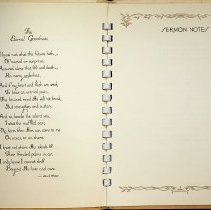 The
Eternal Goodness
I know not what the future hath
Of marvel or surprise,
Assured alone that life and death
His mercy underlies.
And if my heart and flesh are weak
To bear an untried pain,
The bruised reed He will not break,
But strengthen and sustain.
And so beside the silent sea
I wait the muffled oar;
No harm from Him can come to me
On ocean or on shore.
I know not where His islands lift
Their fronded palms in air;
I only know I cannot drift
Beyond His love and care.
SERMON NOTES